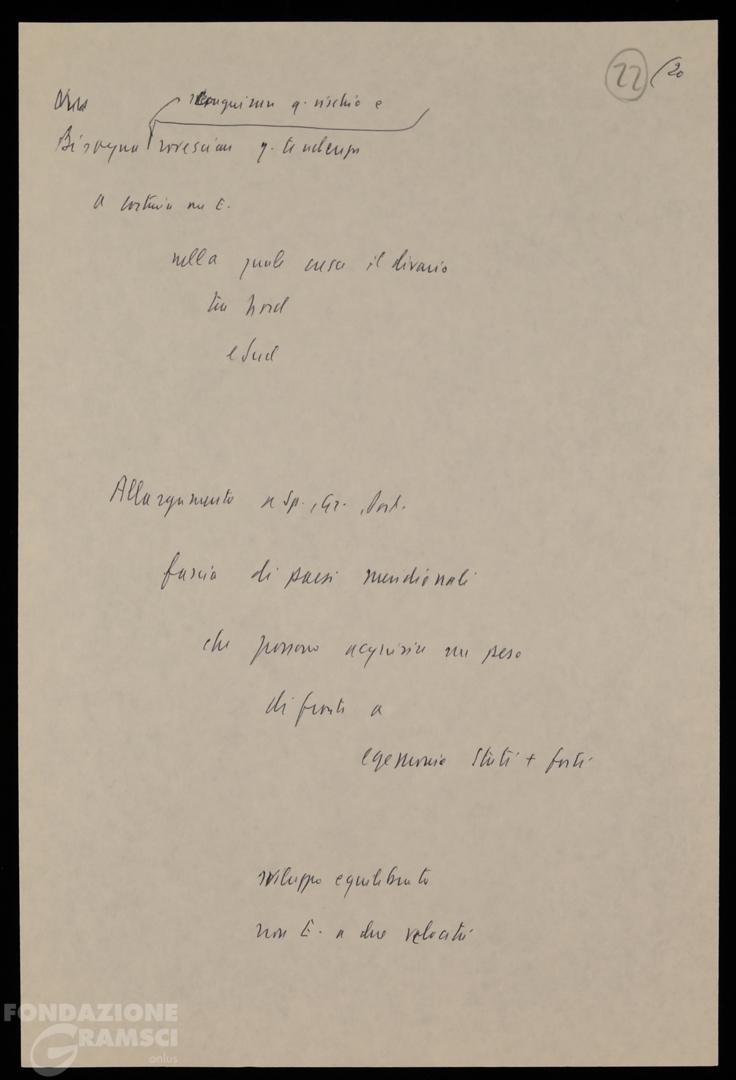 22 /20
scongiurare q. rischio e
Bisogna rovesciare q. tendenza
a costruire una E.
nella quale cresce il divario
tra Nord
e Sud
Allargamento a Sp., Gr., Port.
fascia di paesi meridionali
che possono acquisire un peso
di fronte a
egemonia Stati + forti
sviluppo equilibrato
non E. a due velocità
FONDAZIONE
GRAMSCI
onlus